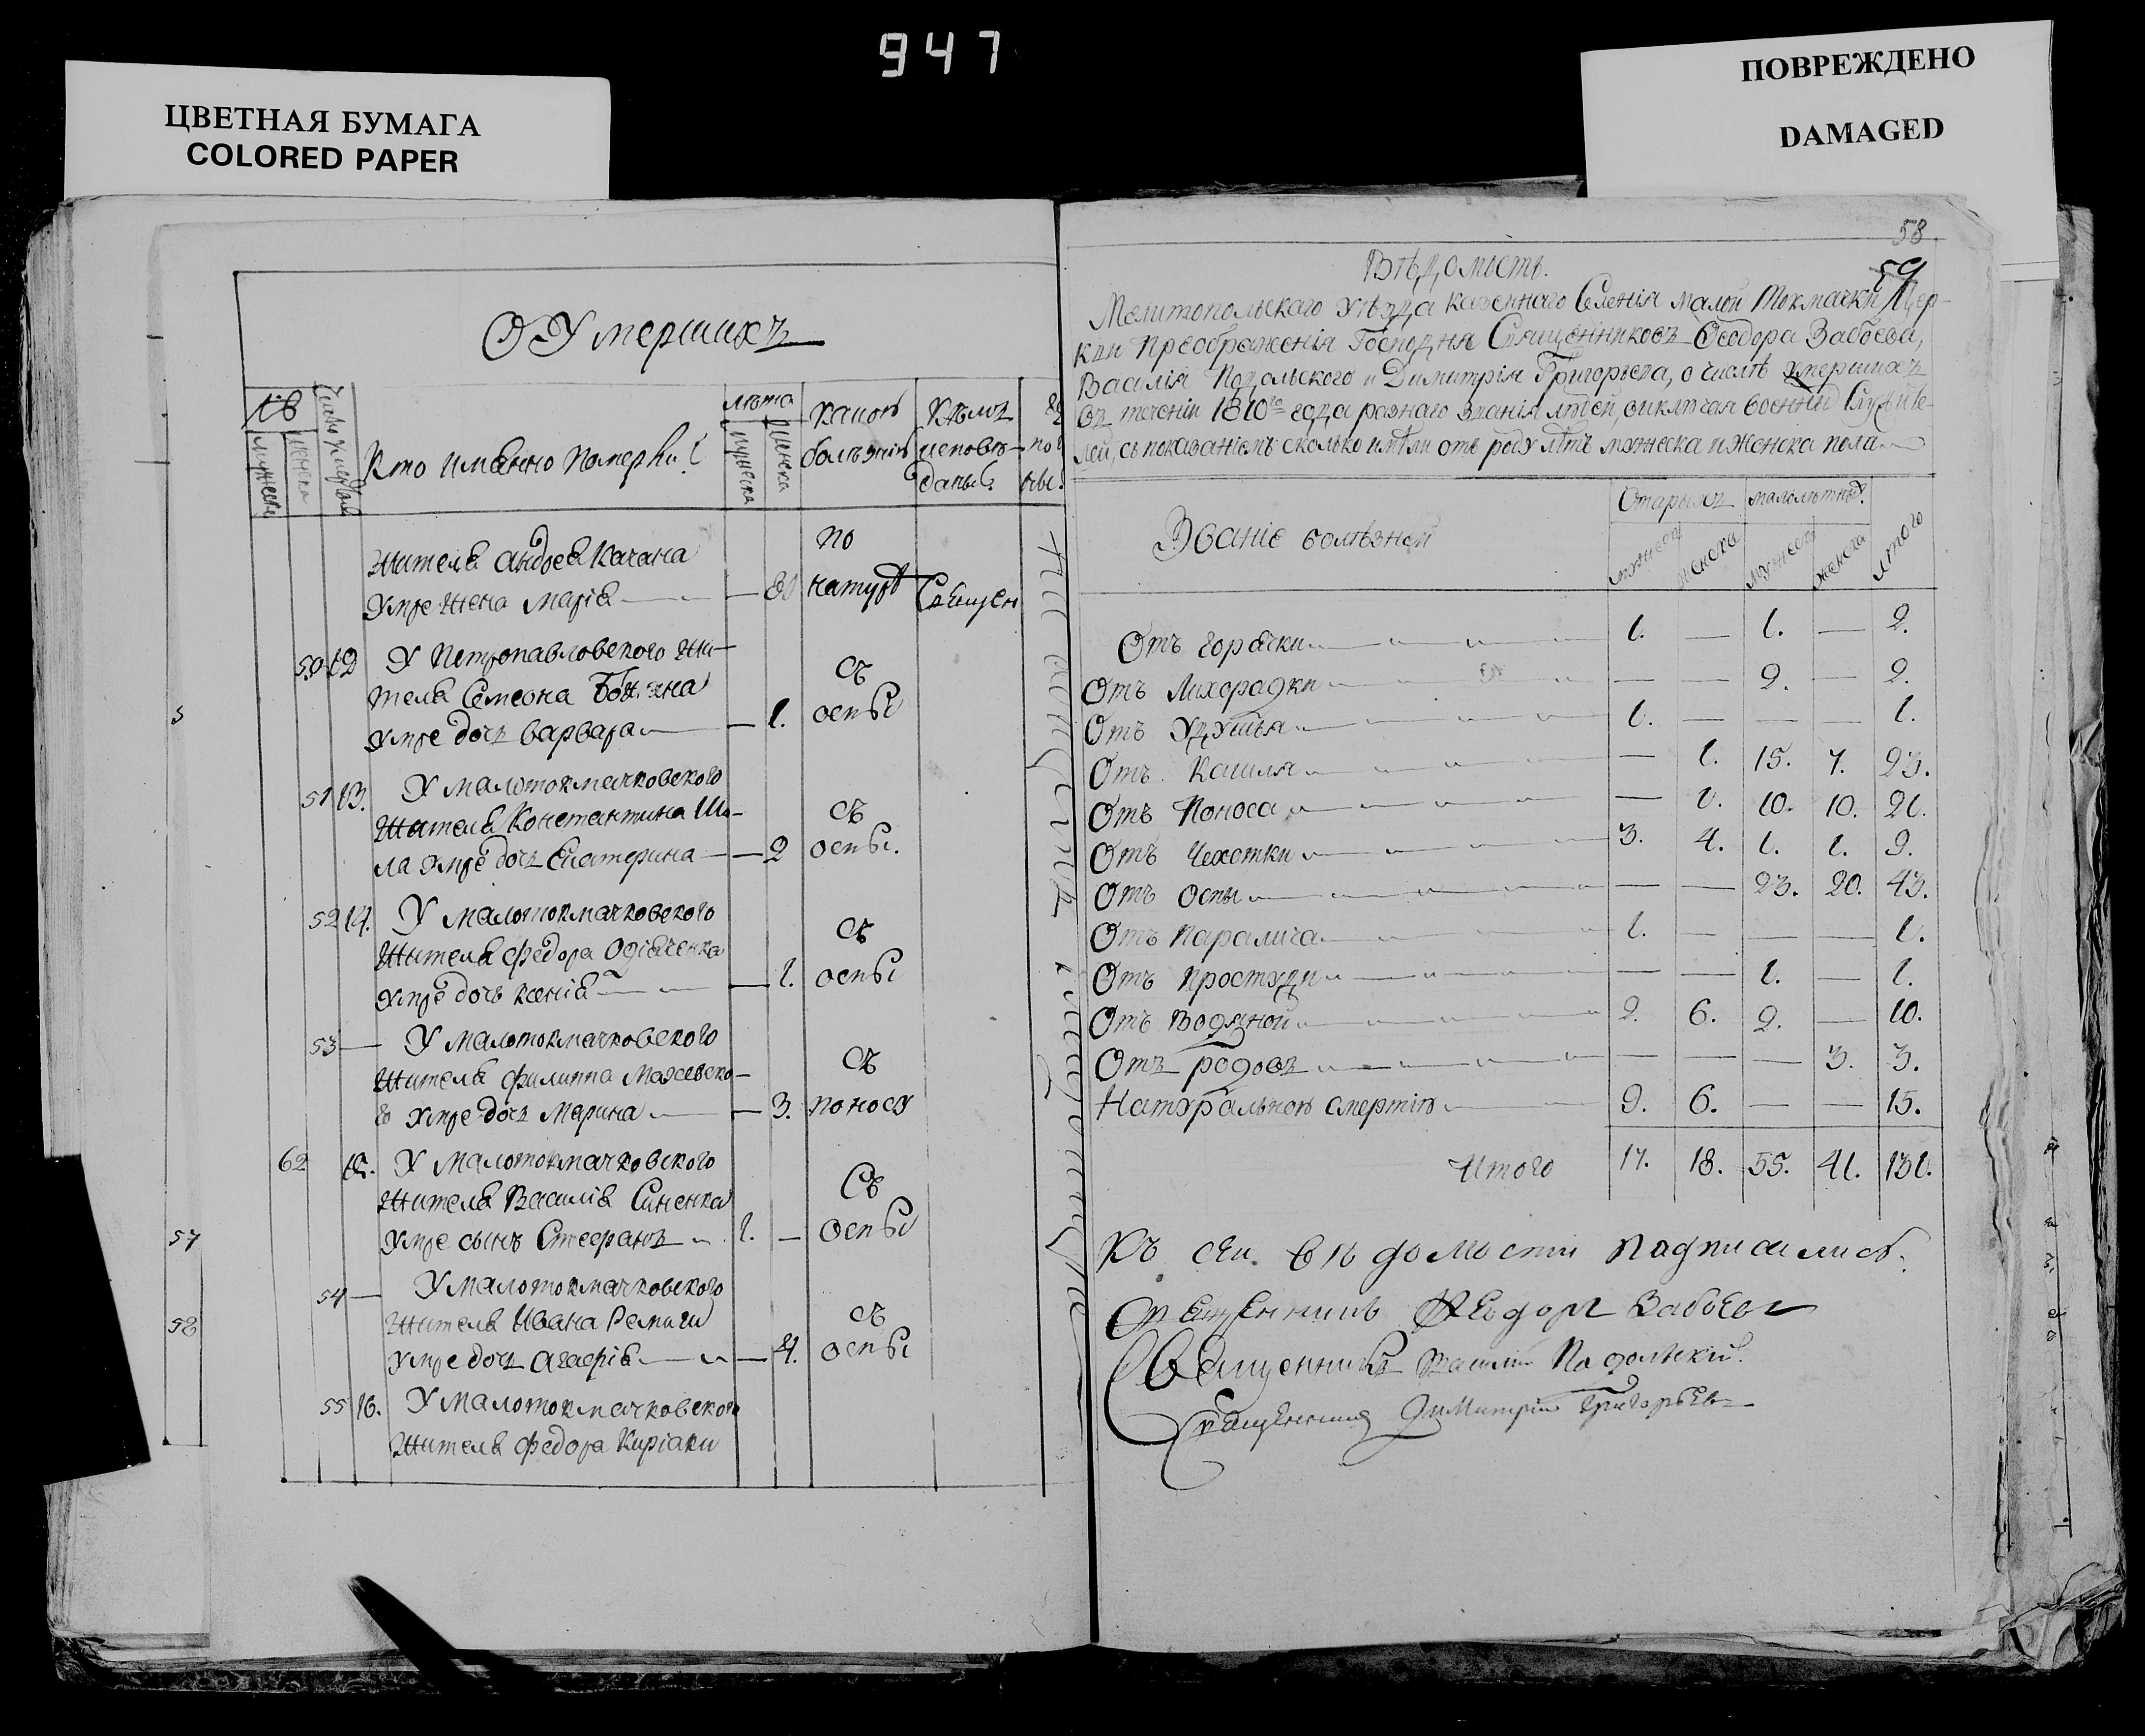 947
ЦВЕТНАЯ БУМАГА
COLORED PAPER
ПОВРЕЖДЕНО
DAMAGED
О Умершихъ
Кто имянно померли?
лѣта
мужеска
женска
какою болѣзнію
кѣмъ исповѣданы?
жителя Андрея Качана
умре жена Марія — 80
по натурѣ
Священ
50 12 У Петропавловского жи-
теля Семеона
умре дочь Варвара — 1.
съ оспы
51 13. У малотокмачковского
жителя Константина Ша-
ла умре дочь Екатерина — 2
съ оспы.
52 14. У малотокмачковского
жителя Федора
умре дочь Ксенія — 1.
съ оспы
53 — У малотокмачковского
жителя Филиппа Махсевско-
го умре дочь Марина — 3.
съ поносу
62 15. У малотокмачковского
жителя Василія Синенка
умре сынъ Стефанъ 1. —
съ оспы
54 — У малотокмачковского
жителя Ивана Ремиги
умре дочь Агафія — 4.
съ оспы
55 16. У малотокмачковского
жителя Федора Киріаки
5
57
58
58
59
Вѣдомость.
Мелитопольскаго уѣзда казеннаго Селенія малой Токмачки Цер-
кви Преображенія Господня Священниковъ Феодора Забоева,
Василія Подольского и Димитрія Григорьева, о числѣ умершихъ
въ теченіи 1810го года разнаго званія людей, виключая воення Служите-
лей, съ показаніемъ сколько имѣли отъ роду лѣтъ мужеска и женска пола
Званіе болѣзней
Старыхъ
малолѣтныхъ
мужеска
женска
мужеска
женска
Итого
Отъ горячки 1. — 1. — 2.
Отъ Лихорадки — — 2. — 2.
Отъ Удушья 1. — — — 1.
Отъ Кашля — 1. 15. 7. 23.
Отъ Поноса — 1. 10. 10. 21.
Отъ Чехотки 3. 4. 1. 1. 9.
Отъ Оспы — — 23. 20. 43.
Отъ Паралича 1. — — — 1.
Отъ Простуди — — 1. — 1.
Отъ Водяной 2. 6. 2. — 10.
Отъ родовъ — — — 3. 3.
Натуральною смертію 9. 6. — — 15.
Итого 17. 18. 55. 41. 131.
Къ сей вѣдомости подписались.
Священникъ Феодоръ Забоевъ
Священникъ Василій Падольский.
Священникъ Димитрій Григорьевъ